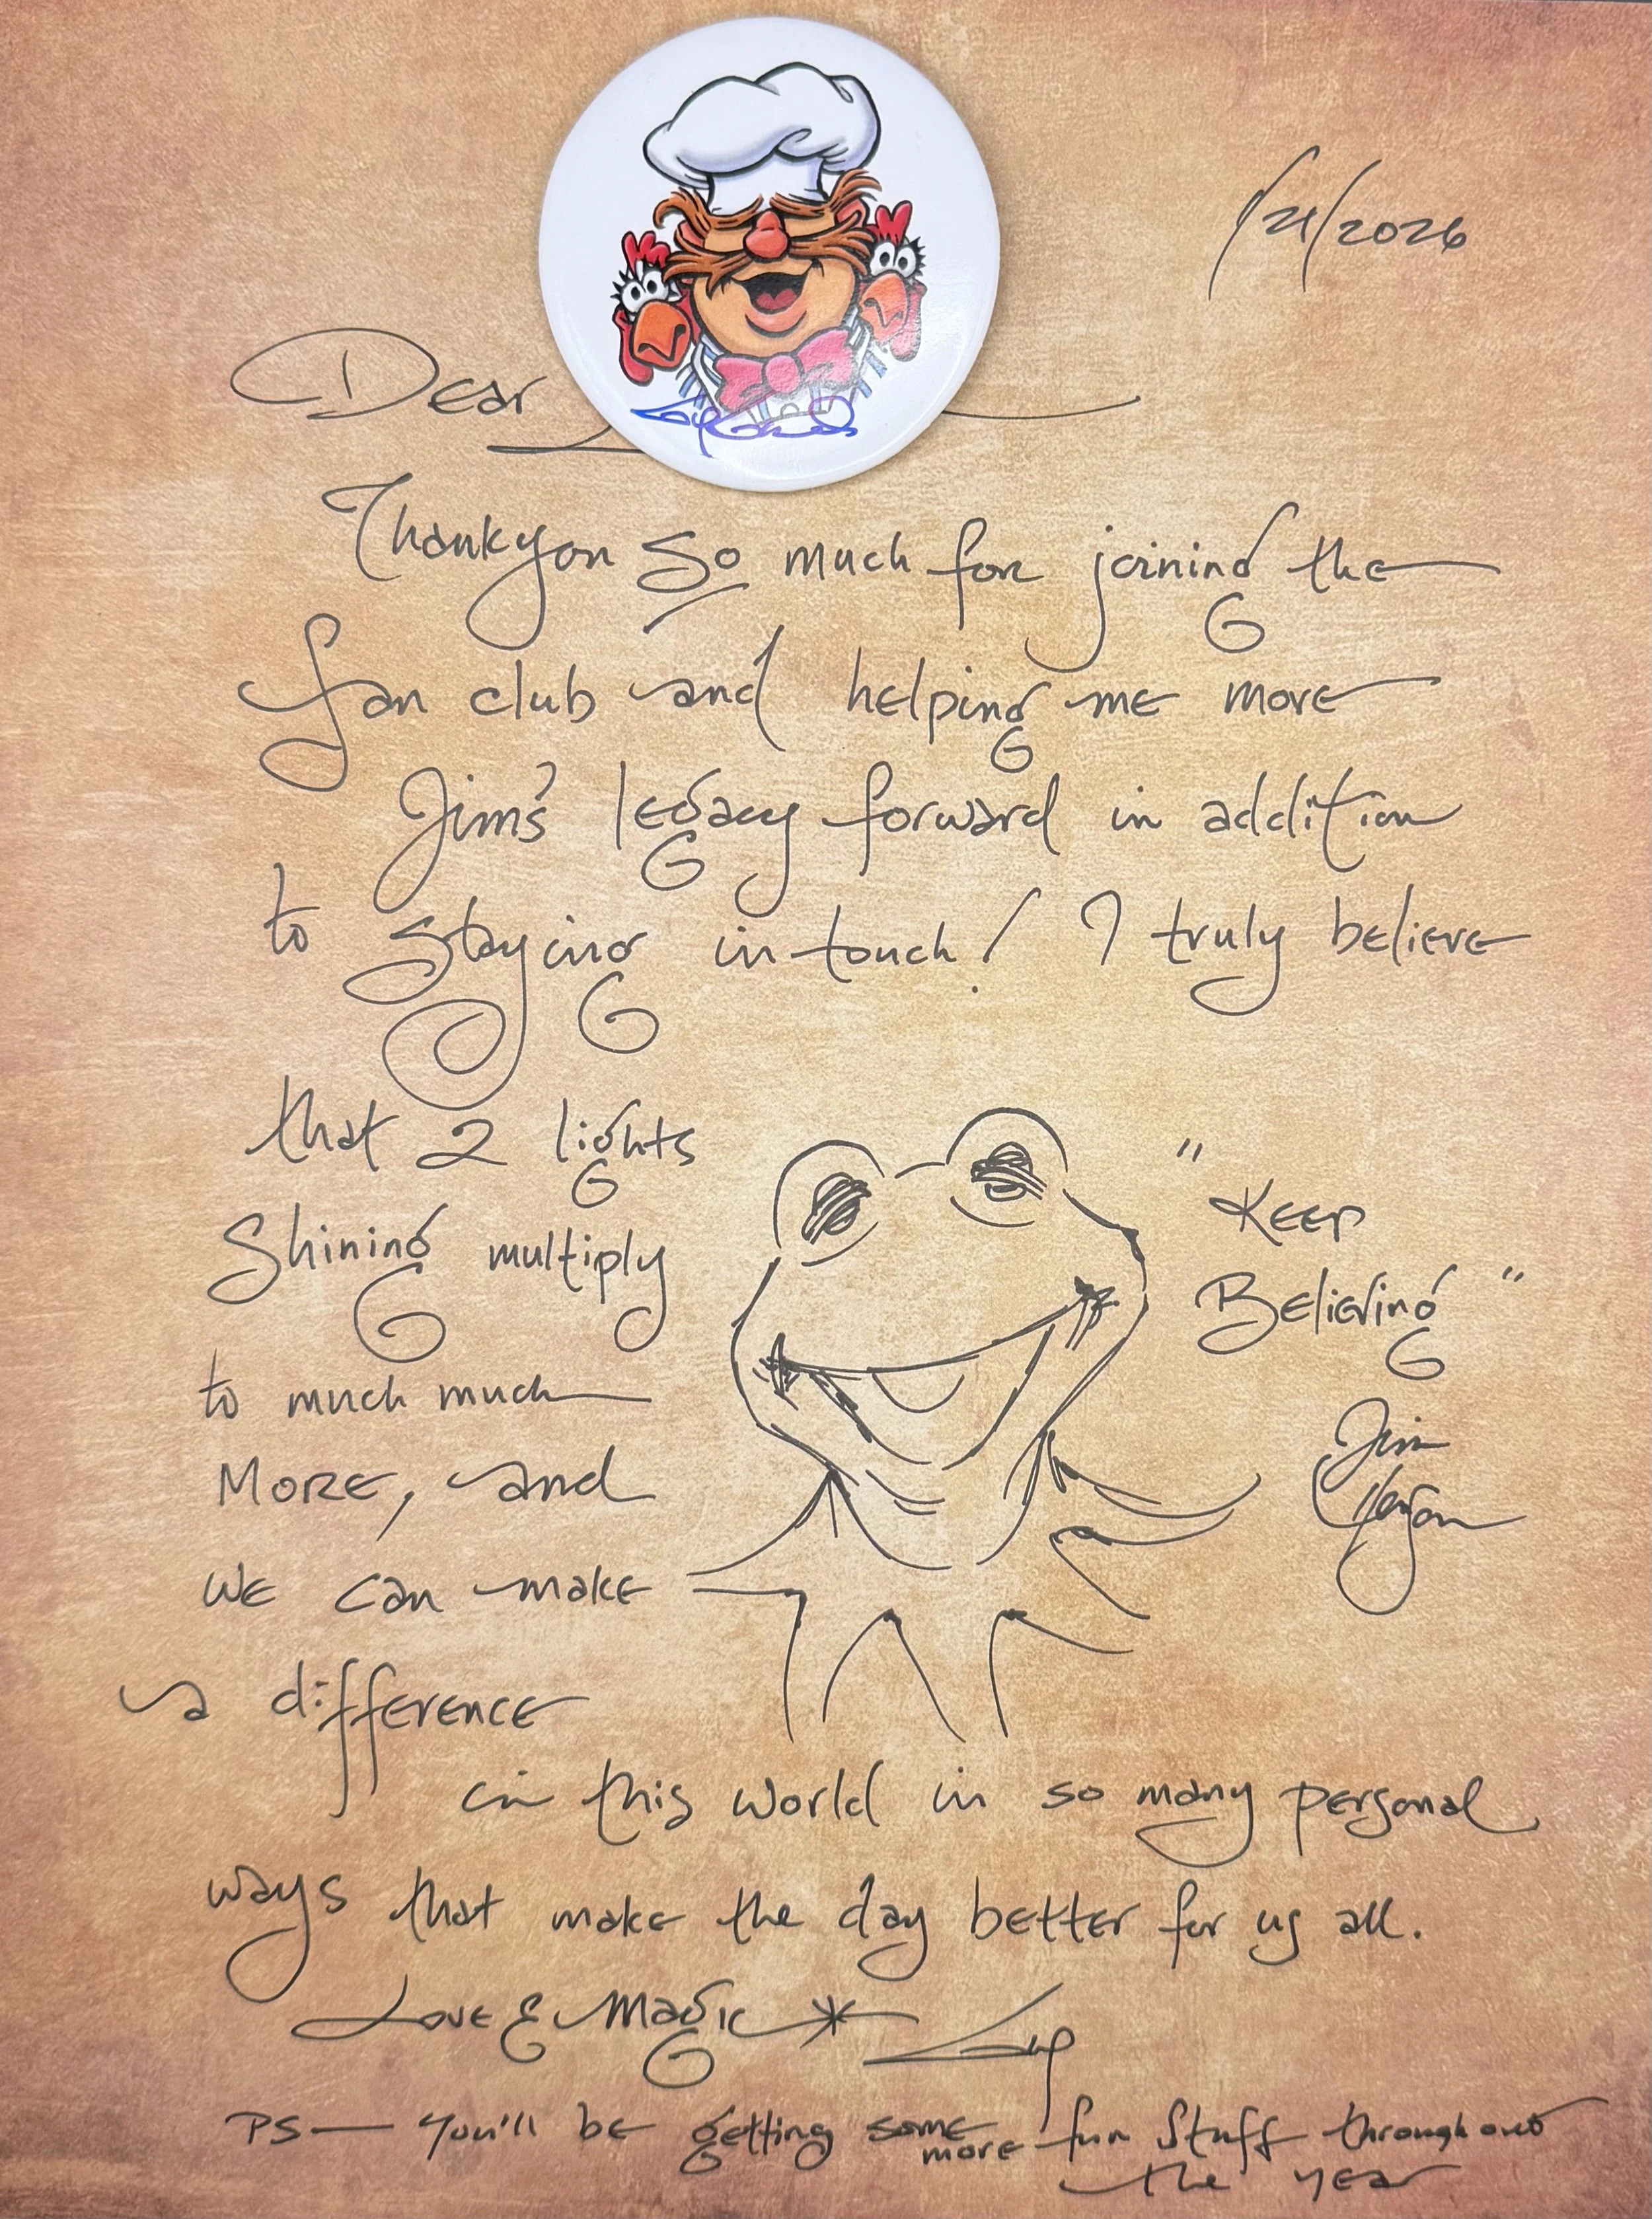 1/21/2026
Dear
Thankyou So much for joining the
fan club and helping me more
Jim's legacy forward in addition
to staying in touch! I truly believe
that 2 lights
Shining multiply
to much much
MORE, and
we can make
a difference
in this world in so many personal
ways that make the day better for us all.
Love & Magic
Guy
PS— You'll be getting some more fun Stuff throughout
the year
"Keep
Believing"
Jim
Henson